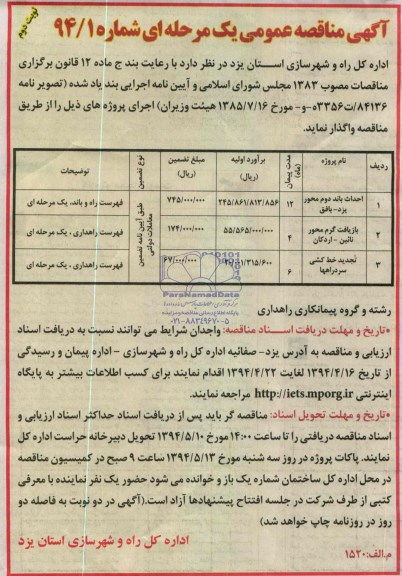 نوبت دوم
آگهی مناقصه عمومی یک مرحله ای شماره ۹۴/۱
اداره کل راه و شهرسازی استان یزد در نظر دارد با رعایت بند ج ماده ۱۲ قانون برگزاری
مناقصات مصوب ۱۳۸۳ مجلس شورای اسلامی و آیین نامه اجرایی بند یاد شده (تصویر نامه
۸۴۱۳۶/ت۳۳۵۶۰ه-و- مورخ ۱۳۸۵/۷/۱۶ هیئت وزیران) اجرای پروژه های ذیل را از طریق
مناقصه واگذار نماید.
ردیف نام پروژه مدت پیمان (ماه) برآورد اولیه (ریال) مبلغ تضمین (ریال) نوع تضمین توضیحات
۱ احداث باند دوم محور یزد- بافق ۱۲ ۲۴۵/۸۶۱/۸۱۳/۸۵۶ ۷۴۵/۰۰۰/۰۰۰ طبق آیین نامه تضمین معاملات دولتی فهرست راه و باند، یک مرحله ای
۲ بازیافت گرم محور نائین - اردکان ۴ ۵۵/۵۶۵/۰۰۰/۰۰۰ ۱۷۴/۰۰۰/۰۰۰ فهرست راهداری ، یک مرحله ای
۳ تجدید خط کشی سردراهها ۶ ۳۱۵/۶۰۰ ۶۷/۰۰۰/۰۰۰ فهرست راهداری ، یک مرحله ای
ParsNamadData
۰۲۱-۸۸۳۴۹۶۷۰-۵
رشته و گروه پیمانکاری راهداری
•تاریخ و مهلت دریافت اسناد مناقصه: واجدان شرایط می توانند نسبت به دریافت اسناد
ارزیابی و مناقصه به آدرس یزد- صفائیه اداره کل راه و شهرسازی - اداره پیمان و رسیدگی
از تاریخ ۱۳۹۴/۴/۱۶ لغایت ۱۳۹۴/۴/۲۲ اقدام نمایند برای کسب اطلاعات بیشتر به پایگاه
اینترنتی http://iets.mporg.ir مراجعه نمایند.
•تاریخ و مهلت تحویل اسناد: مناقصه گر باید پس از دریافت اسناد حداکثر اسناد ارزیابی و
اسناد مناقصه دریافتی را تا ساعت ۱۴:۰۰ مورخ ۱۳۹۴/۵/۱۰ تحویل دبیرخانه حراست اداره کل
نمایند. پاکات پروژه در روز سه شنبه مورخ ۱۳۹۴/۵/۱۳ ساعت ۹ صبح در کمیسیون مناقصه
در محل اداره کل ساختمان شماره یک باز و خوانده می شود حضور یک نفر نماینده با معرفی
کتبی از طرف شرکت در جلسه افتتاح پیشنهادها آزاد است.(آگهی در دو نوبت به فاصله دو
روز در روزنامه چاپ خواهد شد)
اداره کل راه و شهرسازی استان یزد
م.الف:۱۵۲۰